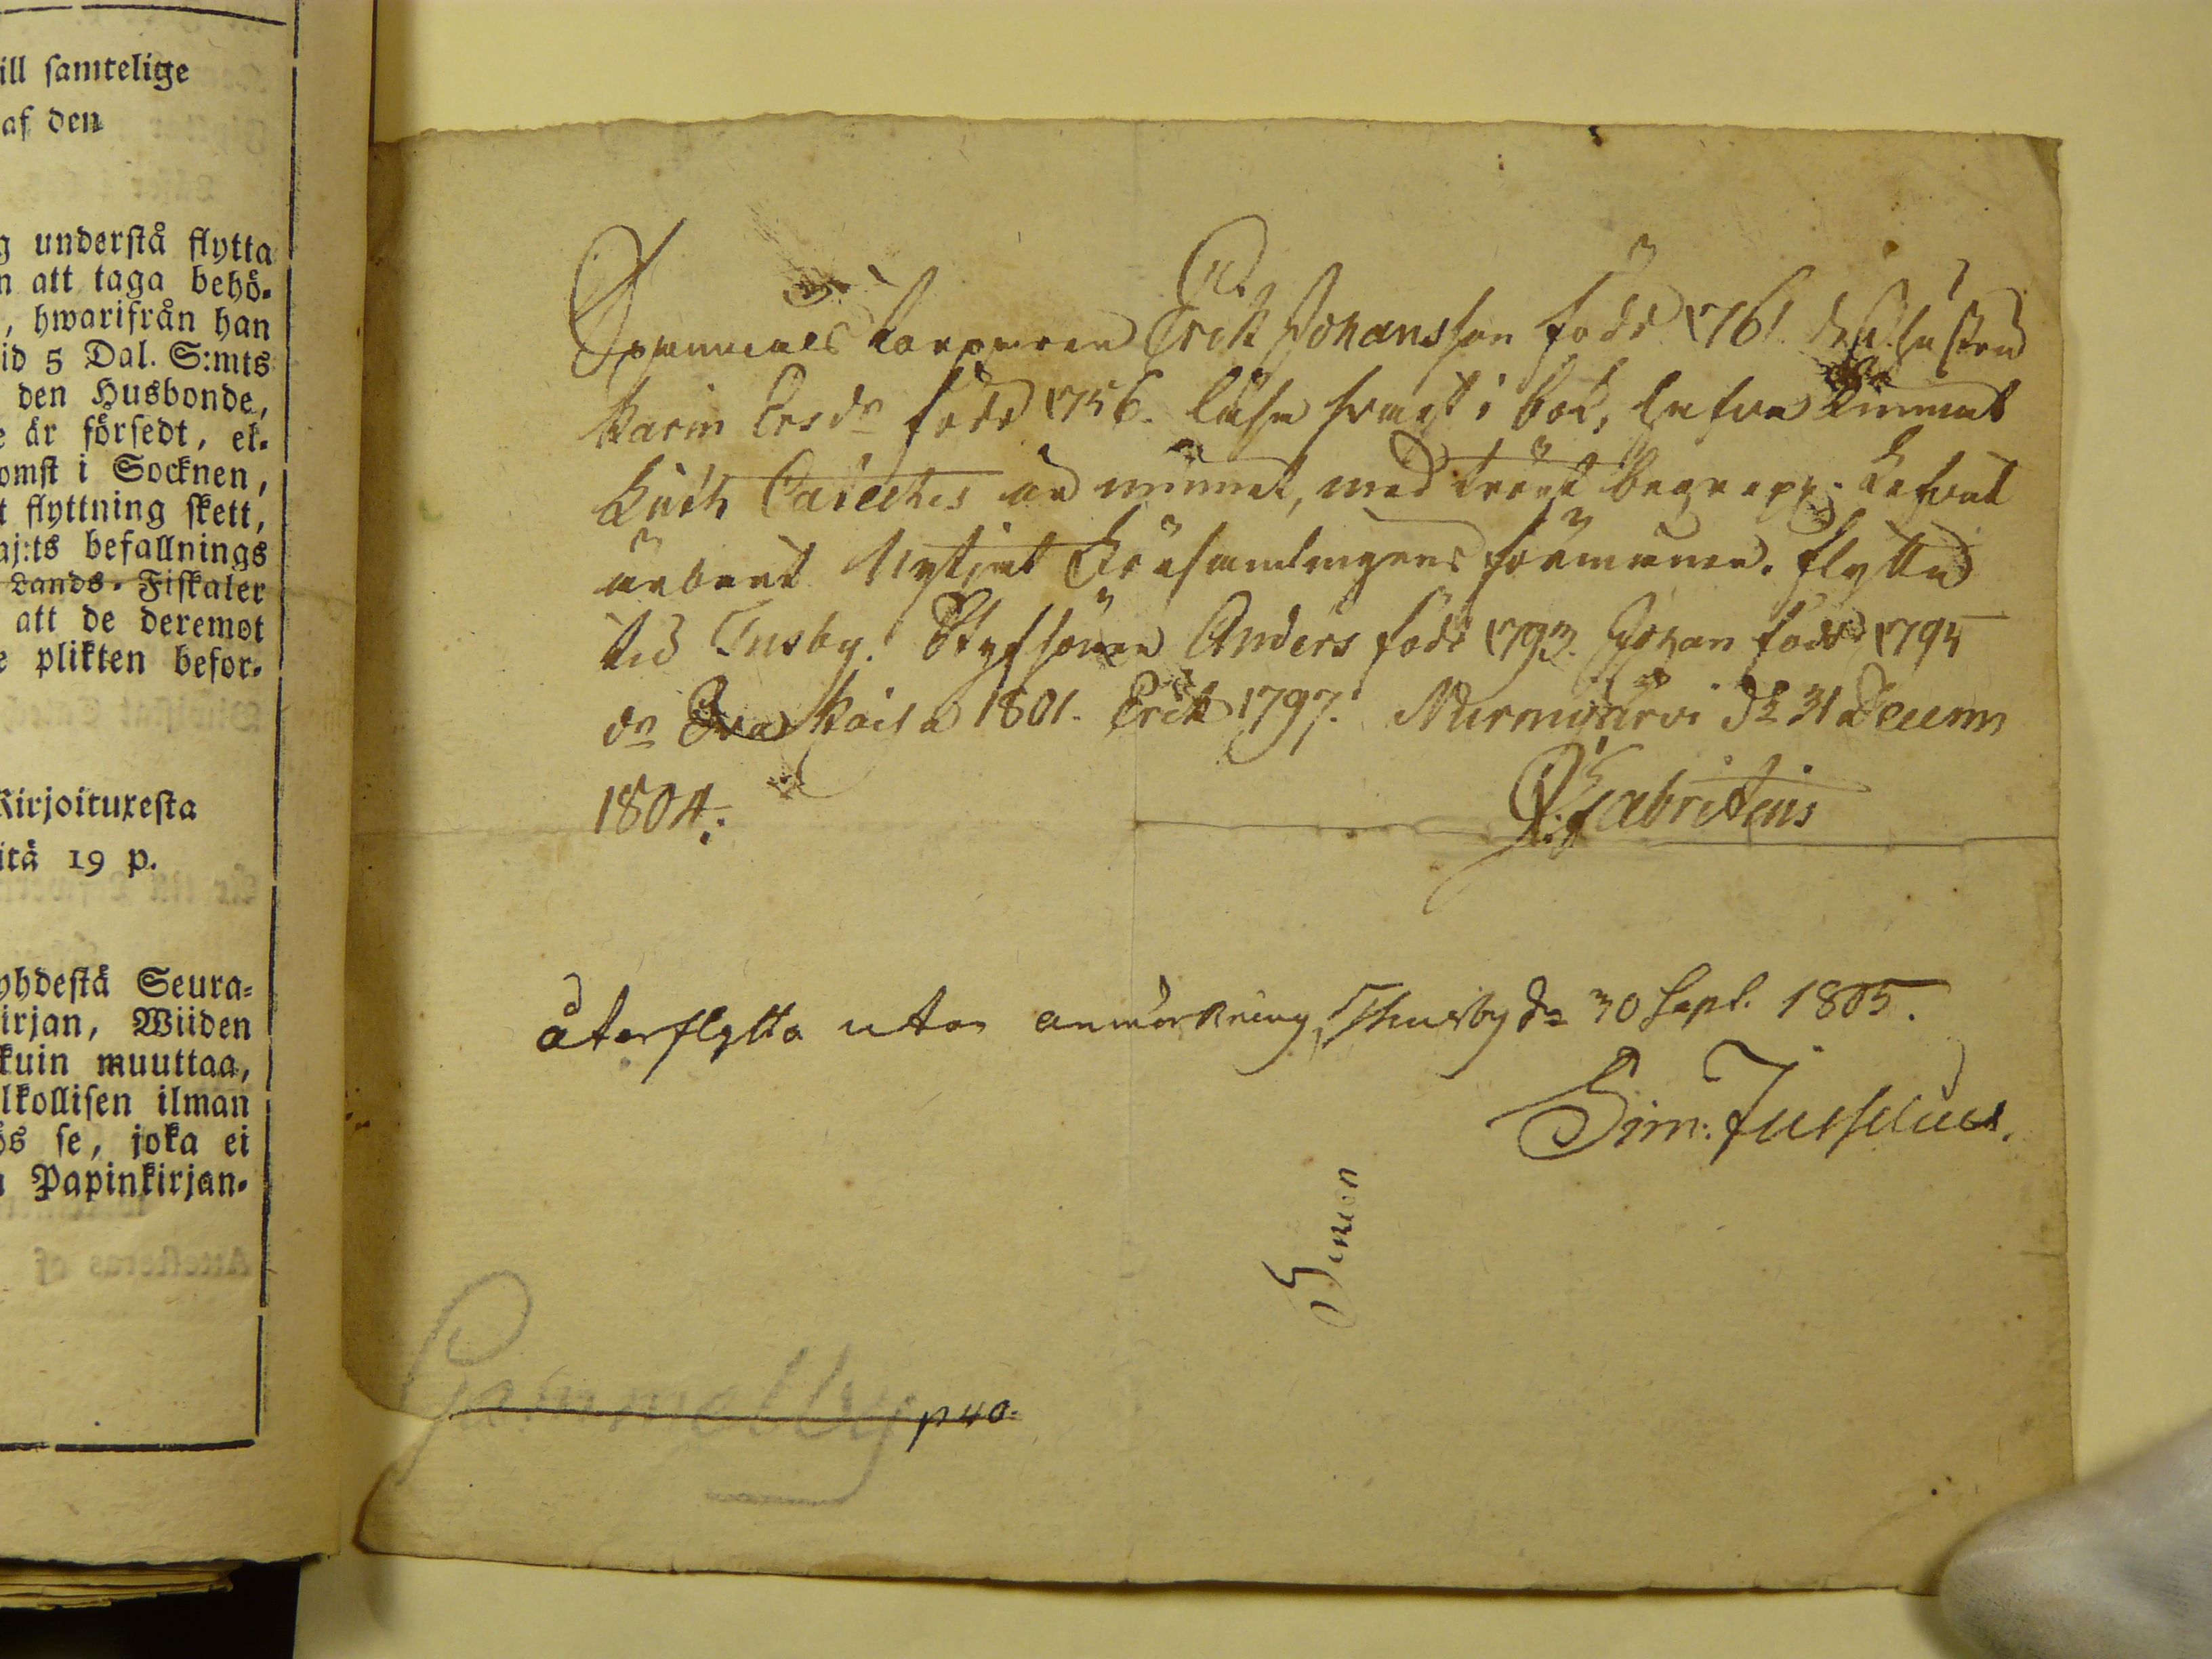 ill samtelige
af den
g understå flytta
n att taga behö-
, hwarifrån han
id 5 Dal. S:mts
den Husbonde,
e är försedt, el-
omst i Socknen,
t flyttning skett,
aj:ts befallnings
Lands-Fiskaler
att de deremot
e plikten befor-
Kirjoituxesta
itä 19 p.
yhdestä Seura-
irjan, Wiiden
kuin muuttaa,
lkollisen ilman
ös se, joka ei
a Papinkirjan-
Erik Johansson född 1761. hustrun
Karin Ersdr född 1756. läsa svagt i bok,
Luth Cateches ur minnet, med trögt begrepp. Lefvat
ärbart Nytjat Församlingens förmåner. flytta
till Tusby. Styfsönen Anders född 1793. Johan född 1795
dr Eva Kaisa 1801. Erik 1797. Nurmijärvi dn 31 Decemb
1804.
Fabritius
återflytta utan anmärkning, Thusby dn 30 Sept. 1805.
Sim:
Simon
Gammelby p40.